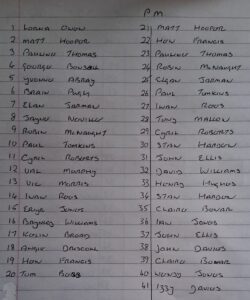 PM
1 Lorna Owen
2 Matt Hooper
3 Pauline Thomas
4 George Bonsell
5 Yvonne Abray
6 Brain Pugh
7 Elan Jarman
8 Jayne Neville
9 Robin McNaught
10 Paul Tomkins
11 Cyrch Roberts
12 Val Murphy
13 Vic Morris
14 Iwan Roos
15 Eryl Jones
16 Barnley Williams
17 Kolin Broad
18 Angie Driscoll
19 How Francis
20 Tom Bobb
21 Matt Hooper
22 How Francis
23 Pauline Thomas
24 Robin McNaught
25 Elgan Jarman
26 Paul Tomkins
27 Iwan Roos
28 Tony Mallon
29 Cyrch Roberts
30 Stan Harden
31 John Ellis
32 David Williams
33 Henry Hughes
34 Stan Harden
35 Claire Bowar
36 Ian Jones
37 John Ellis
38 John Davies
39 Claire Bowar
40 Jones
41 Davies